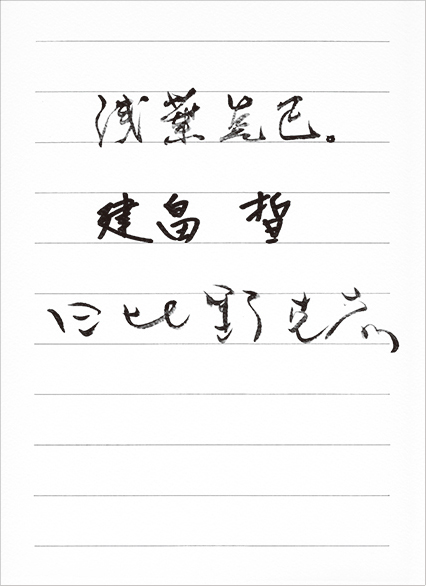 浅葉克己。
建畠 哲
日比野克彦